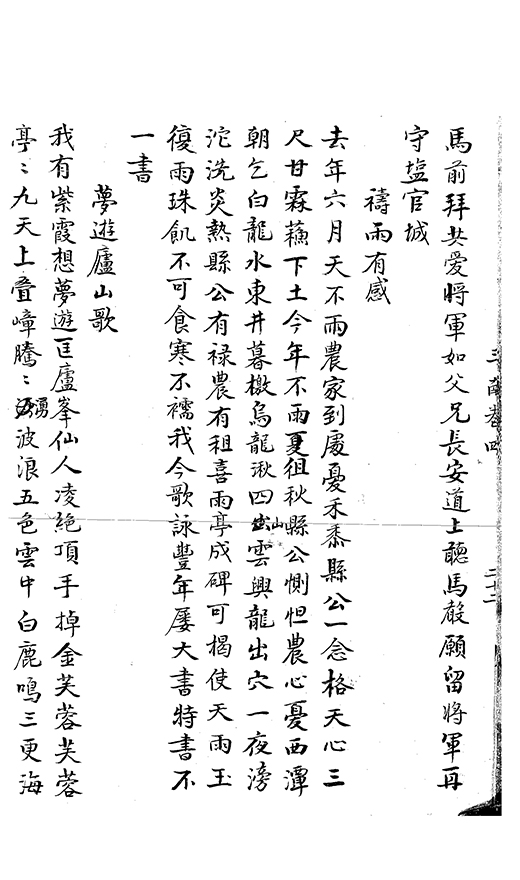 馬前拜共愛將軍如父兄長安道上聽馬聲願留將軍再
守塩官城
禱雨有感
去年六月天不雨農家到處憂禾黍縣公一念格天心三
尺甘霖蘓下土今年不雨夏徂秋縣公惻怛農心憂西潭
朝乞白龍水東井暮檄烏龍湫四山雲興龍出穴一夜滂
沱洗炎熱縣公有禄農有租喜雨亭成碑可揭使天雨玉
復雨珠飢不可食寒不襦我今歌詠豐年屢大書特書不
一書
夢遊廬山歌
我有紫霞想夢遊匡廬峯仙人凌絶頂手掉金芙蓉芙蓉
亭〻九天上疊嶂騰〻湧波浪五色雲中白鹿鳴三更海